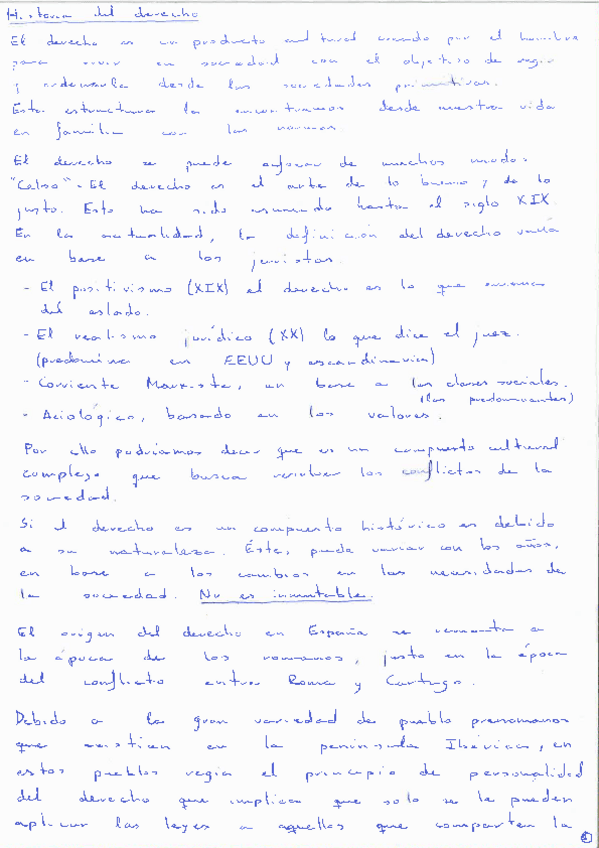 Historia del derecho
El derecho es un producto cultural creado por el hombre
para vivir en sociedad con el objetivo de regir
y ordenarla desde las sociedades primitivas.
Esta estructura la encontramos desde nuestra vida
en familia con las normas.
El derecho se puede enfocar de muchos modos:
"Celso" - El derecho es el arte de lo bueno y de lo
justo. Esto ha sido asumido hasta el siglo XIX
En la actualidad, la definición del derecho varía
en base a los juristas.
- El positivismo (XIX) el derecho es lo que
del estado.
- El realismo jurídico (XX) lo que dice el juez.
(predomina en EEUU y escandinavia)
- Corriente Marxista, en base a las clases sociales.
(las predominantes)
- Aciológico, basado en los valores.
Por ello podríamos decir que es un compuesto cultural
complejo que busca resolver los conflictos de la
sociedad.
Si el derecho es un compuesto histórico es debido
a su naturaleza. Éste, puede variar con los años,
en base a los cambios en las necesidades de
la sociedad. No es inmutable.
El origen del derecho en España se remonta a
la época de los romanos, justo en la época
del conflicto entre Roma y Cartago.
Debido a la gran variedad de pueblo prerromanos
que existían en la península Ibérica, en
estos pueblos regía el principio de personalidad
del derecho que implica que solo se le pueden
aplicar las leyes a aquellos que comparten la